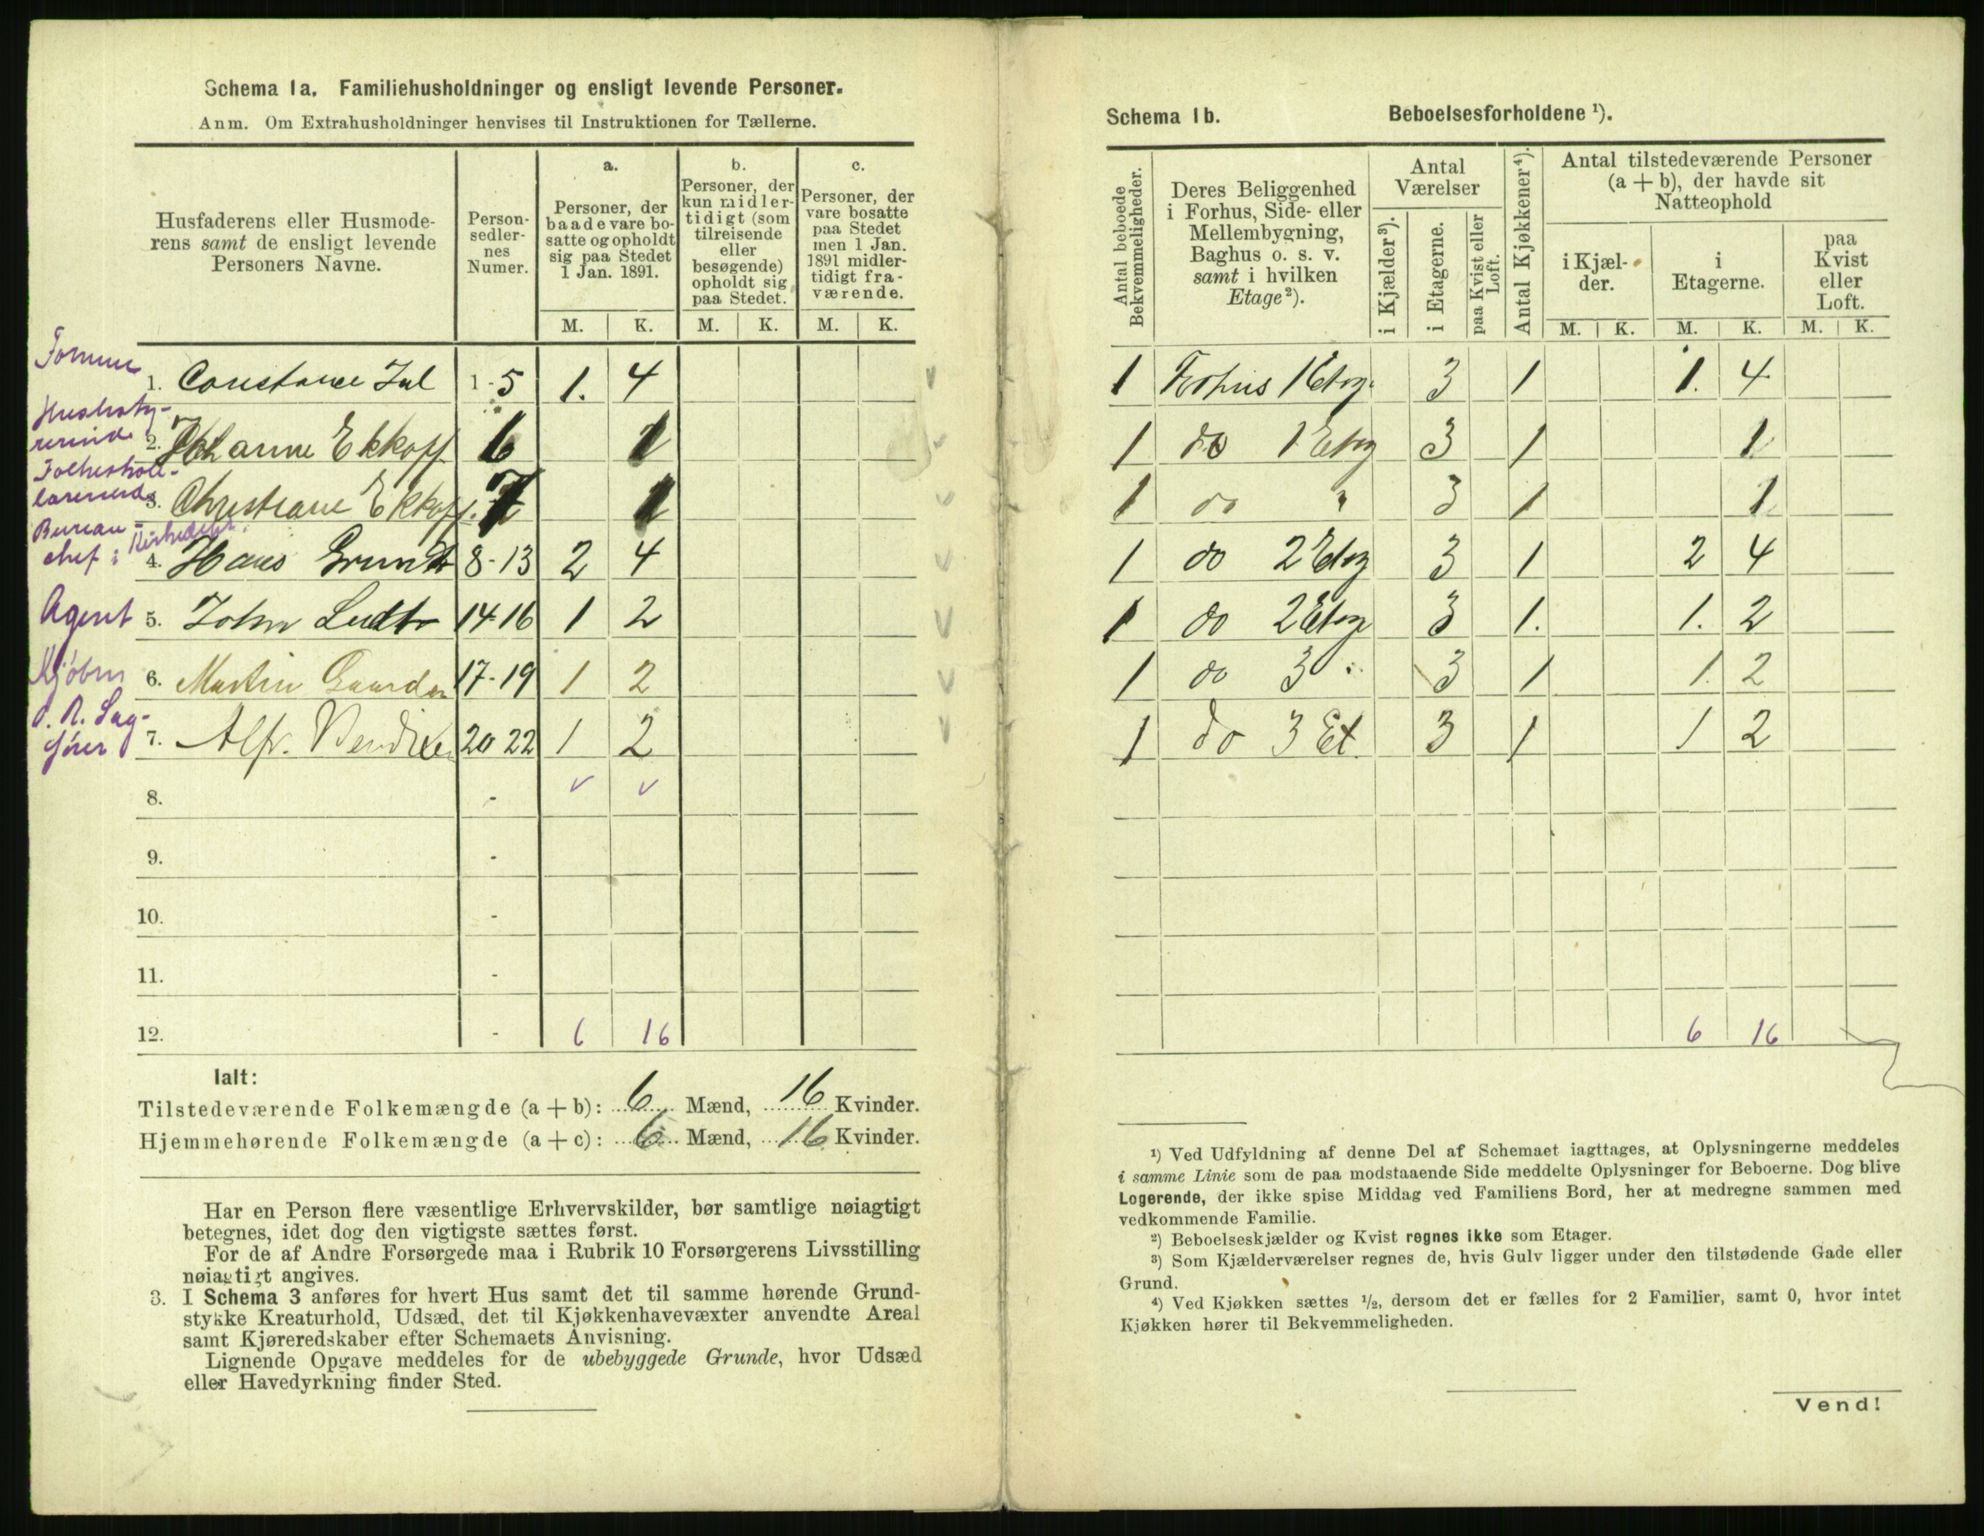 Schema 1a. Familiehusholdninger og ensligt levende Personer.
Anm. Om Extrahusholdninger henvises til Instruktionen for Tællerne.
Husfaderens eller Husmode-
rens samt de ensligt levende
Personers Navne.
Person-
sedler-
nes
Numer.
a.
Personer, der
baade vare bo-
satte og opholdt
sig paa Stedet
1 Jan. 1891.
b.
Personer, der
kun midler-
tidigt (som
tilreisende
eller
besøgende)
opholdt sig
paa Stedet.
c.
Personer, der
vare bosatte
paa Stedet
men 1 Jan.
1891 midler-
tidigt fra-
værende.
M. K. M. K. M. K.
1. Constance Jul 1-5 1. 4
2. Johanne Ekkoff 6 1
3. Christiane Ekkoff 7 1
Bureau-
chef i
4. Hans Grundt 8-13 2 4
Agent 5. John 14-16 1 2
6. Martin Gaarder 17-19 1 2
O. R. Sag-
fører 7. Alfr. Bendixen 20 22 1 2
v v
8. -
9. -
10. -
11. -
12. - 6 16
Ialt:
Tilstedeværende Folkemængde (a + b): 6 Mænd, 16 Kvinder.
Hjemmehørende Folkemængde (a + c): 6 Mænd, 16 Kvinder.
Har en Person flere væsentlige Erhvervskilder, bør samtlige nøiagtigt
betegnes, idet dog den vigtigste sættes først.
For de af Andre Forsørgede maa i Rubrik 10 Forsørgerens Livsstilling
nøiagtigt angives.
3. I Schema 3 anføres for hvert Hus samt det til samme hørende Grund-
stykke Kreaturhold, Udsæd, det til Kjøkkenhavevæxter anvendte Areal
samt Kjøreredskaber efter Schemaets Anvisning.
Lignende Opgave meddeles for de ubebyggede Grunde, hvor Udsæd
eller Havedyrkning finder Sted.
Schema 1b. Beboelsesforholdene ¹).
Antal beboede
Bekvemmeligheder.
Deres Beliggenhed
i Forhus, Side- eller
Mellembygning,
Baghus o. s. v.
samt i hvilken
Etage²).
Antal
Værelser
i Kjælder³).
i Etagerne.
paa Kvist eller
Loft.
Antal Kjøkkener⁴).
Antal tilstedeværende Personer
(a + b), der havde sit
Natteophold
i Kjæl-
der.
i
Etagerne.
paa
Kvist
eller
Loft.
M. K. M. K. M. K.
1 Forhus 1 Etag. 3 1 1. 4
1 do 1 Etag 3 1 1
1 do " 3 1 1
1 do 2 Etag 3 1 2 4
1 do 2 Etag 3 1. 1. 2
1 do 3 " 3 1 1. 2
1 do 3 Et 3 1 1 2
6 16
¹) Ved Udfyldning af denne Del af Schemaet iagttages, at Oplysningerne meddeles
i samme Linie som de paa modstaaende Side meddelte Oplysninger for Beboerne. Dog blive
Logerende, der ikke spise Middag ved Familiens Bord, her at medregne sammen med
vedkommende Familie.
²) Beboelseskjælder og Kvist regnes ikke som Etager.
³) Som Kjælderværelser regnes de, hvis Gulv ligger under den tilstødende Gade eller
Grund.
⁴) Ved Kjøkken sættes ½, dersom det er fælles for 2 Familier, samt 0, hvor intet
Kjøkken hører til Bekvemmeligheden.
Vend!